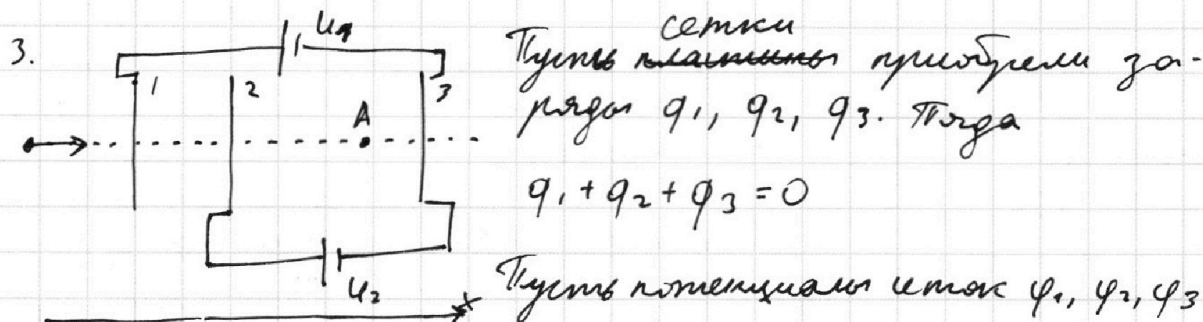 3.
U₁
1 2 3
A
U₂
x
сетки
Пусть пластины приобрели за-
ряды q₁, q₂, q₃. Тогда
q₁ + q₂ + q₃ = 0
Пусть потенциалы сеток φ₁, φ₂, φ₃